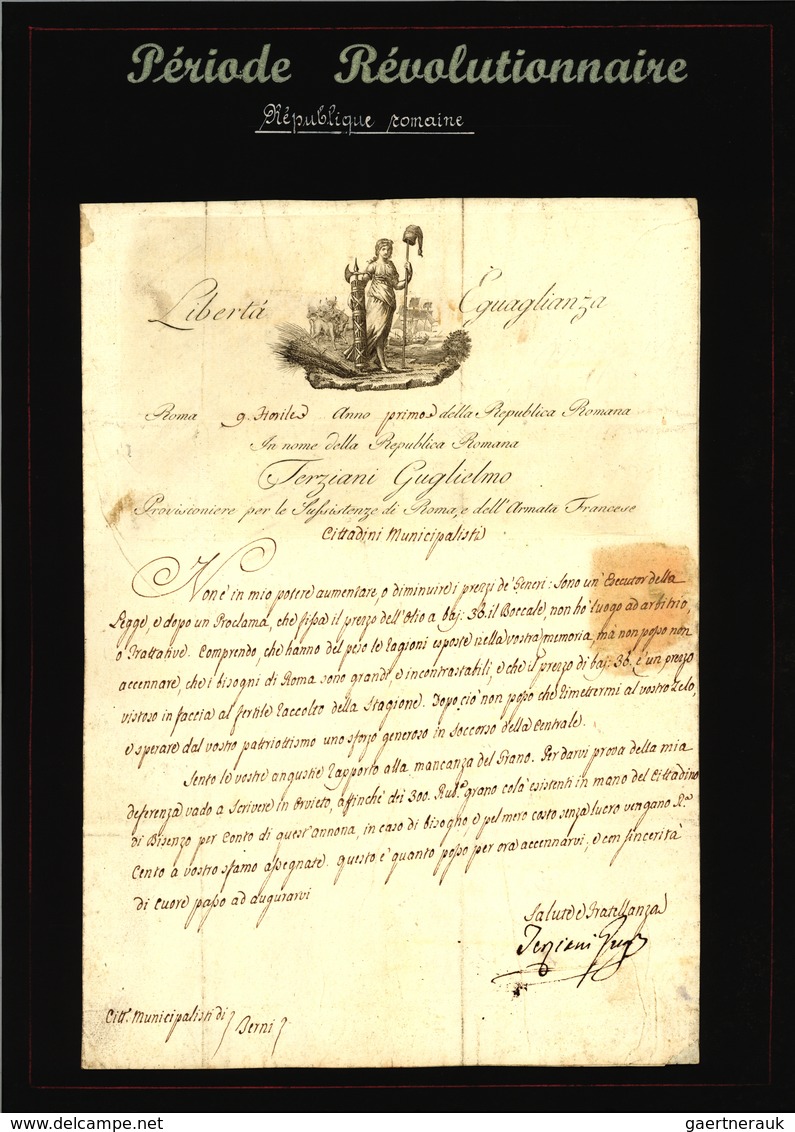 Période Révolutionnaire
République romaine
Libertá Eguaglianza
Roma 9. Fiorile Anno primo della Republica Romana
In nome della Republica Romana
Terziani Guglielmo
Provisioniere per le Sussistenze di Roma, e dell'Armata Francese
Cittadini Municipalisti
Non è in mio potere aumentare, o diminuire i prezzi de' Generi: Sono un' Esecutor della
Legge, e dopo un Proclama, che fissa il prezzo dell'Olio a baj: 36. il Boccale, non ho luogo ad arbitrio,
o Trattative. Comprendo, che hanno del peso le ragioni esposte nella vostra memoria, mà non posso non
accennare, che i bisogni di Roma sono grandi, e incontrastabili, e che il prezzo di baj: 36. è un prezzo
vistoso in faccia al fertile raccolto della Stagione. Dopo ciò non posso che rimettermi al vostro Zelo,
e sperare dal vostro patriottismo uno sforzo generoso in soccorso della Centrale.
Sento le vostre angustie rapporto alla mancanza del Grano. Per darvi prova della mia
deferenza vado a scrivere in Orvieto, affinchè dei 300. Rub. grano colà esistenti in mano del Cittadino
di Bisenzo per Conto di quest'annona, in caso di bisogno, e pel mero costo senza lucro vengano R.
Cento a vostro sfamo assegnate. questo è quanto posso per ora accennarvi, e con sincerità
di cuore passo ad augurarvi
Salute e Fratellanza
Terziani Gug
Citt. Municipalisti di
gaertnerauk delcampe.net